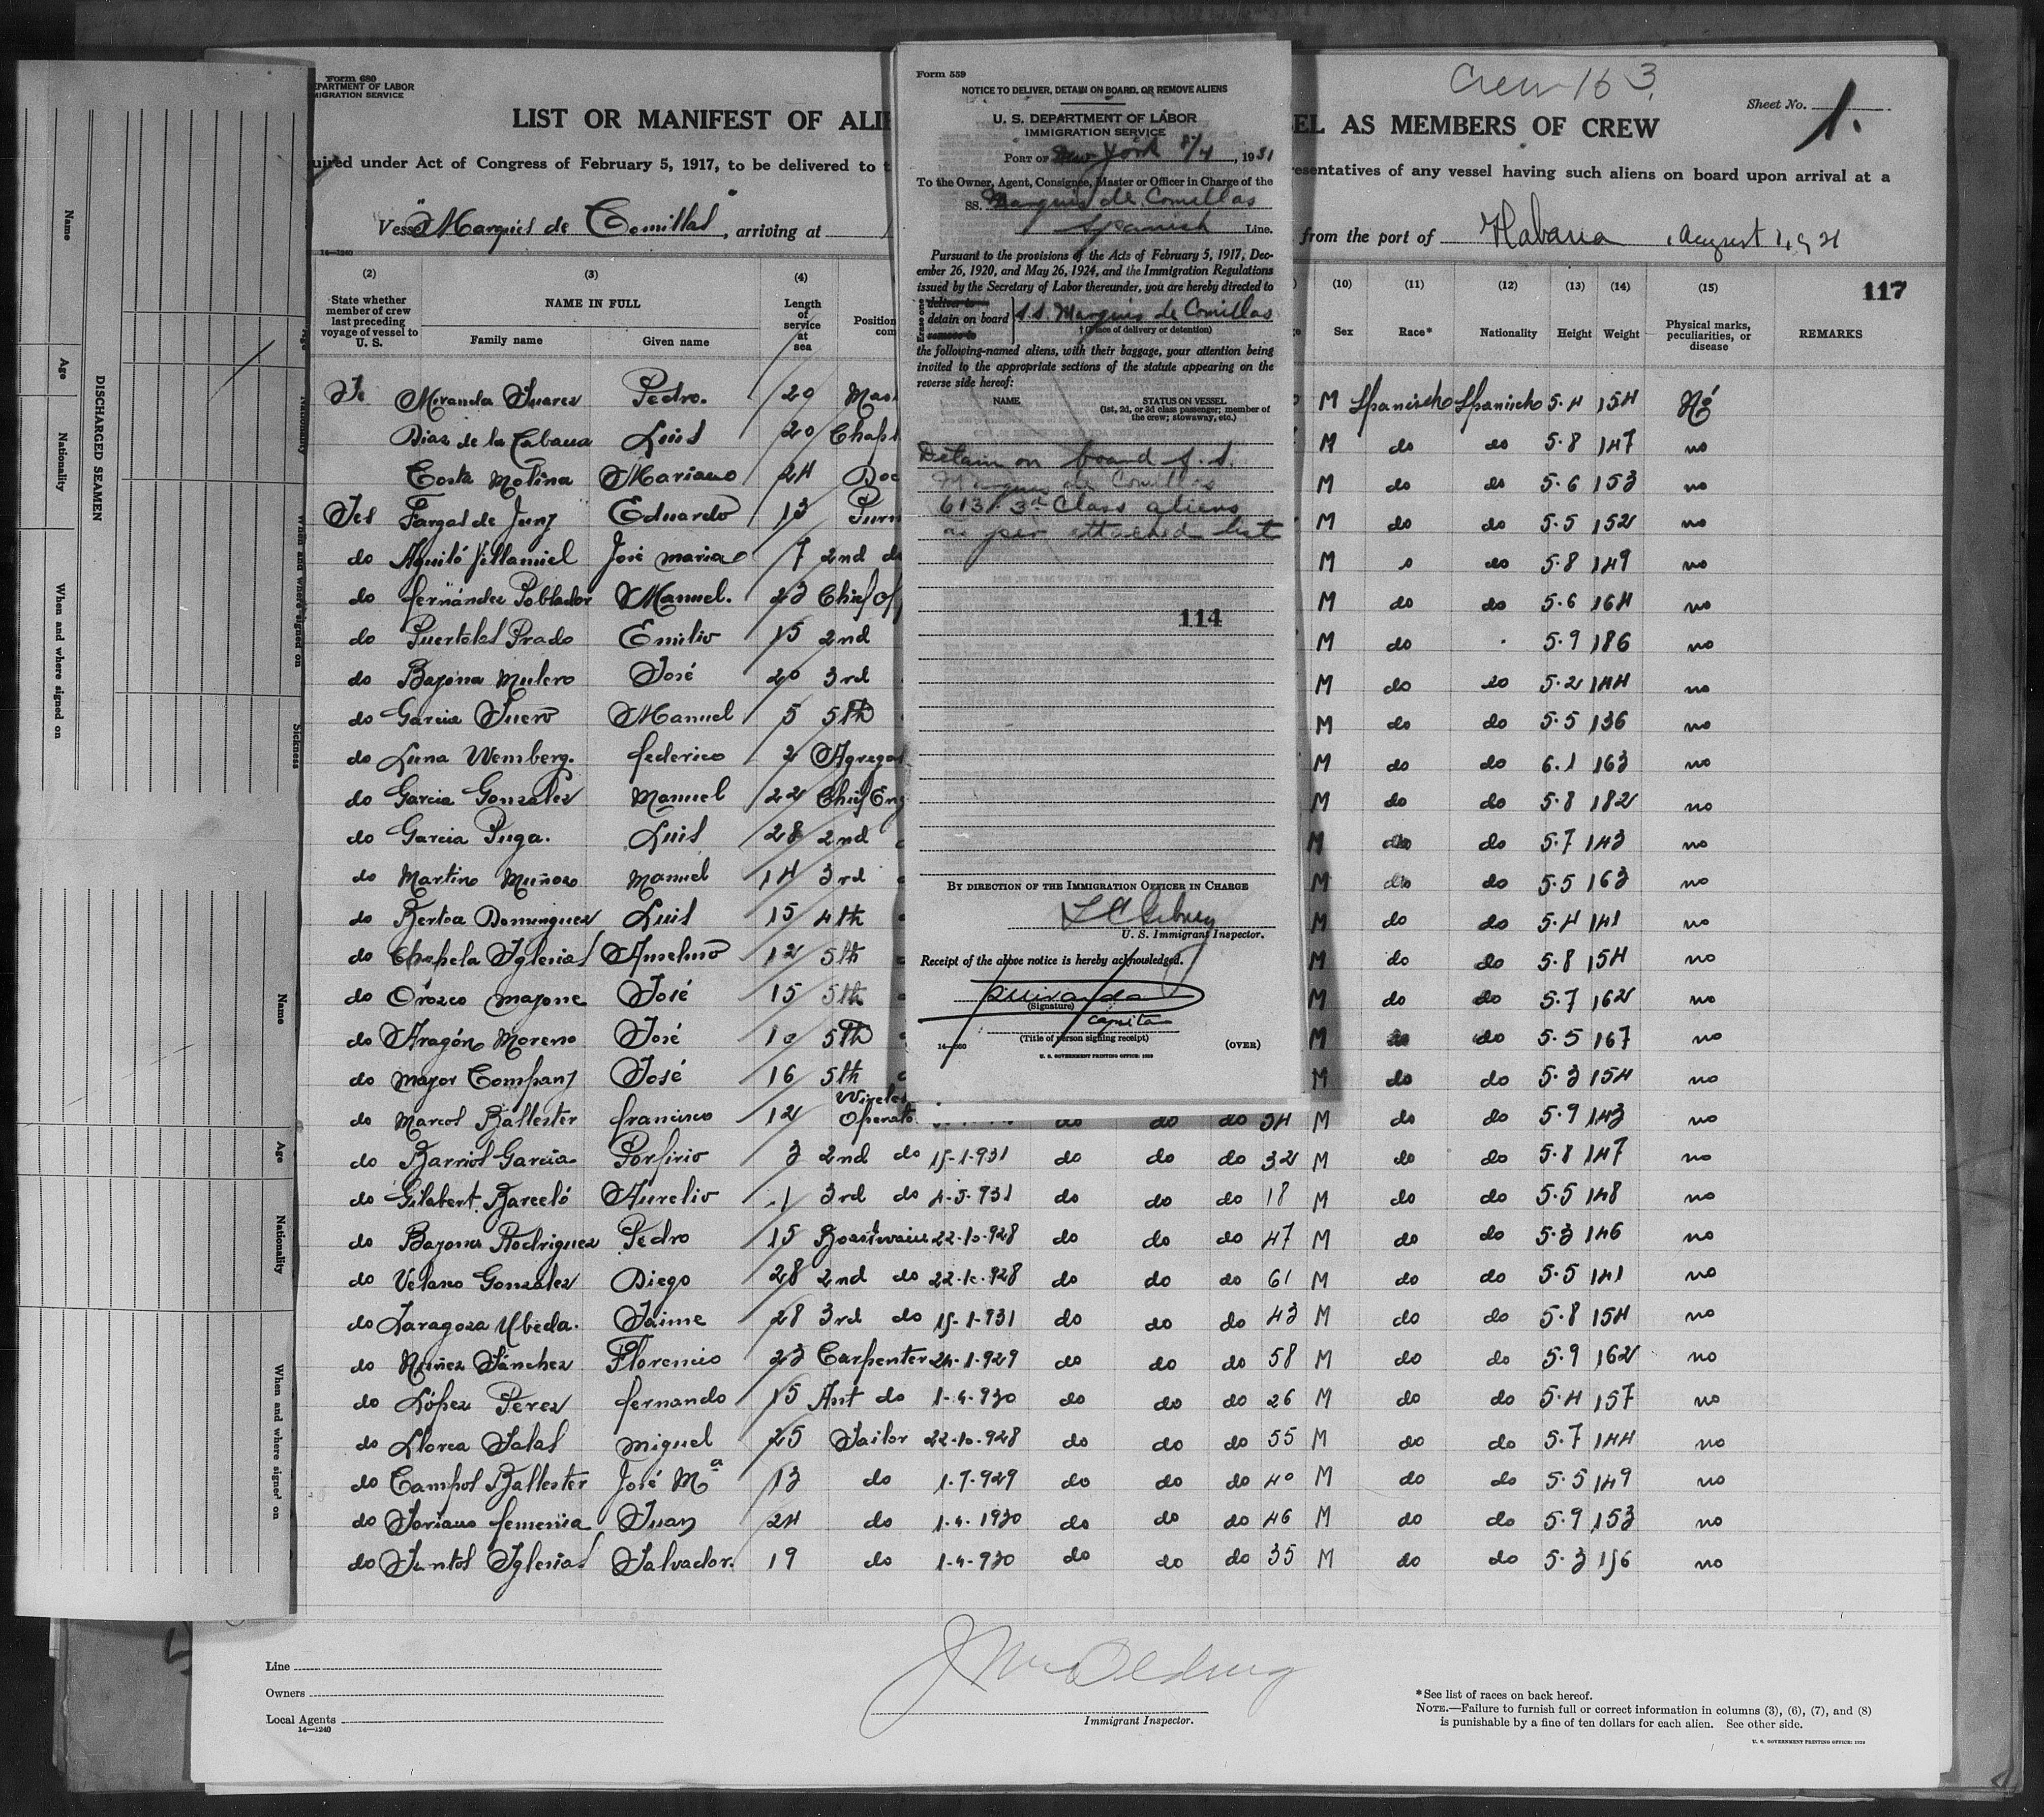 Form 680
DEPARTMENT OF LABOR
MIGRATION SERVICE
Crew 163.
Sheet No. 1.
LIST OR MANIFEST OF ALIE
EL AS MEMBERS OF CREW
uired under Act of Congress of February 5, 1917, to be delivered to t
resentatives of any vessel having such aliens on board upon arrival at a
Vessel "Marqués de Comillas", arriving at
from the port of Habana, august 1,
14—1240
117
(2) (3) (4) (10) (11) (12) (13) (14) (15)
State whether member of crew last preceding voyage of vessel to U. S.
NAME IN FULL
Family name Given name
Length of service at sea
Position
com
Sex Race* Nationality Height Weight
Physical marks, peculiarities, or disease
REMARKS
Miranda Suarez Pedro. 20 Mas M Spanish Spanish 5.4 154 No
Dias de la Cabana Luis 20 Chapl M do do 5.8 147 no
Costa Molina Mariano 24 Doc M do do 5.6 153 no
Yes Fargas de Juny Eduardo 13 Purs M do do 5.5 152 no
do Aguiló Villamiel José maria 7 2nd do M do 5.8 149 no
do fernández Poblador Manuel. 23 Chief Of M do do 5.6 164 no
do Puertolas Prado Emilio 15 2nd M do 5.9 186 no
do Bayona Mulero José 20 3rd M do do 5.2 144 no
do Garcia Suero Manuel 5 5th M do do 5.5 136 no
do Luna Wemberg. federico 2 Agrega M do do 6.1 163 no
do Garcia Gonzalez Manuel 22 Chief Eng M do do 5.8 182 no
do Garcia Puga. Luis 28 2nd M do do 5.7 143 no
do Martino Muñoz Manuel 14 3rd M do do 5.5 163 no
do Bertoa Dominguez Luis 15 4th M do do 5.4 141 no
do Chapela Iglesias Anselmo 12 5th M do do 5.8 154 no
do Orozco mayone José 15 5th M do do 5.7 162 no
do Aragón Moreno José 10 5th M do do 5.5 167 no
do Mayor Company José 16 5th M do do 5.3 154 no
do Marcos Ballester francisco 12 Wireles Operato do do do 34 M do do 5.9 143 no
do Barrios Garcia Porfirio 3 2nd do 15-1-931 do do do 32 M do do 5.8 147 no
do Gilabert Barceló Aurelio 1 3rd do 4-5-931 do do do 18 M do do 5.5 148 no
do Bayona Rodriguez Pedro 15 Boastwain 22-10-928 do do do 47 M do do 5.3 146 no
do Velasco Gonzalez Diego 28 2nd do 22-10-928 do do do 61 M do do 5.5 141 no
do Zaragoza Ubeda. Jaime 28 3rd do 15-1-931 do do do 43 M do do 5.8 154 no
do Nuñez Sánchez Florencio 23 Carpenter 24-1-929 do do do 58 M do do 5.9 162 no
do López Perez fernando 15 Ant do 1-4-930 do do do 26 M do do 5.4 157 no
do Llorca Salas miguel 25 Sailor 22-10-928 do do do 55 M do do 5.7 144 no
do Campos Ballester José Mª 13 do 1-7-929 do do do 40 M do do 5.5 149 no
do Soriano femenia Juan 24 do 1-4-1930 do do do 46 M do do 5.9 153 no
do Santos Iglesias Salvador. 19 do 1-4-930 do do do 35 M do do 5.3 156 no
Line
Owners
Local Agents
14—1240
Immigrant Inspector.
*See list of races on back hereof.
NOTE.—Failure to furnish full or correct information in columns (3), (6), (7), and (8)
is punishable by a fine of ten dollars for each alien. See other side.
U. S. GOVERNMENT PRINTING OFFICE: 1929
Form 559
NOTICE TO DELIVER, DETAIN ON BOARD, OR REMOVE ALIENS
U. S. DEPARTMENT OF LABOR
IMMIGRATION SERVICE
PORT OF New York 8/4, 1931
To the Owner, Agent, Consignee, Master or Officer in Charge of the
SS. Marquis de Comillas
Spanish Line.
Pursuant to the provisions of the Acts of February 5, 1917, Dec-
ember 26, 1920, and May 26, 1924, and the Immigration Regulations
issued by the Secretary of Labor thereunder, you are hereby directed to
Erase one
deliver to
detain on board
remove to
S.S. Marquis de Comillas
†(Place of delivery or detention)
the following-named aliens, with their baggage, your attention being
invited to the appropriate sections of the statute appearing on the
reverse side hereof:
NAME
STATUS ON VESSEL
(1st, 2d, or 3d class passenger; member of
the crew; stowaway, etc.)
Detain on board S.S.
Marquis de Comillas
613 3rd Class aliens
as per attached list
114
BY DIRECTION OF THE IMMIGRATION OFFICER IN CHARGE
U. S. Immigrant Inspector.
Receipt of the above notice is hereby acknowledged.
PMiranda
(Signature)
Capitan
(Title of person signing receipt)
14—560
U. S. GOVERNMENT PRINTING OFFICE: 1929
(OVER)
DISCHARGED SEAMEN
Name
Age
Nationality
When and where signed on
Age
Nationality
When and where signed on
Sickness
Name
Age
Nationality
When and where signed on